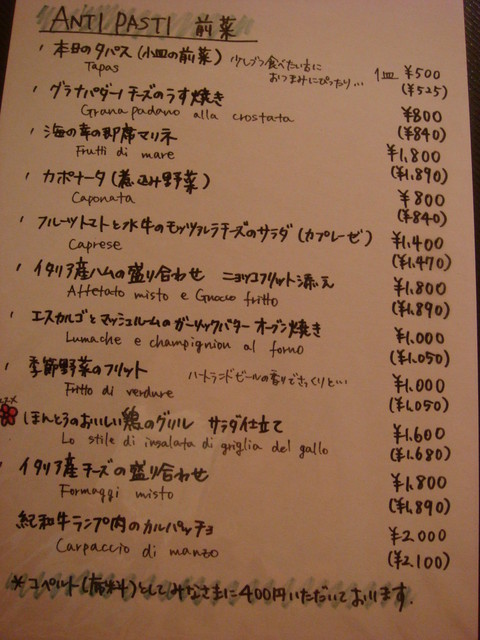 ANTI PASTI 前菜
本日のタパス (小皿の前菜) 少しずつ食べたい方に 1皿 ¥500
Tapas おつまみにぴったり… (¥525)
グラナパダーノチーズのうす焼き ¥800
Grana padano alla crostata (¥840)
海の幸の即席マリネ ¥1,800
Frutti di mare (¥1,890)
カポナータ (煮込み野菜) ¥800
Caponata (¥840)
フルーツトマトと水牛のモッツァレラチーズのサラダ (カプレーゼ) ¥1,400
Caprese (¥1,470)
イタリア産ハムの盛り合わせ ニョッコフリット添え ¥1,800
Affetato misto e Gnocco fritto (¥1,890)
エスカルゴとマッシュルームのガーリックバターオーブン焼き ¥1,000
Lumache e champignion al forno (¥1,050)
季節野菜のフリット ハートランドビールの香りでさっくりと… ¥1,000
Fritto di verdure (¥1,050)
ほんとうのおいしい鶏のグリル サラダ仕立て ¥1,600
Lo stile di insalata di griglia del gallo (¥1,680)
イタリア産チーズの盛り合わせ ¥1,800
Formaggi misto (¥1,890)
紀和牛ランプ肉のカルパッチョ ¥2,000
Carpaccio di manzo (¥2,100)
*コペルト(席料)としてみなさまに400円いただいております.